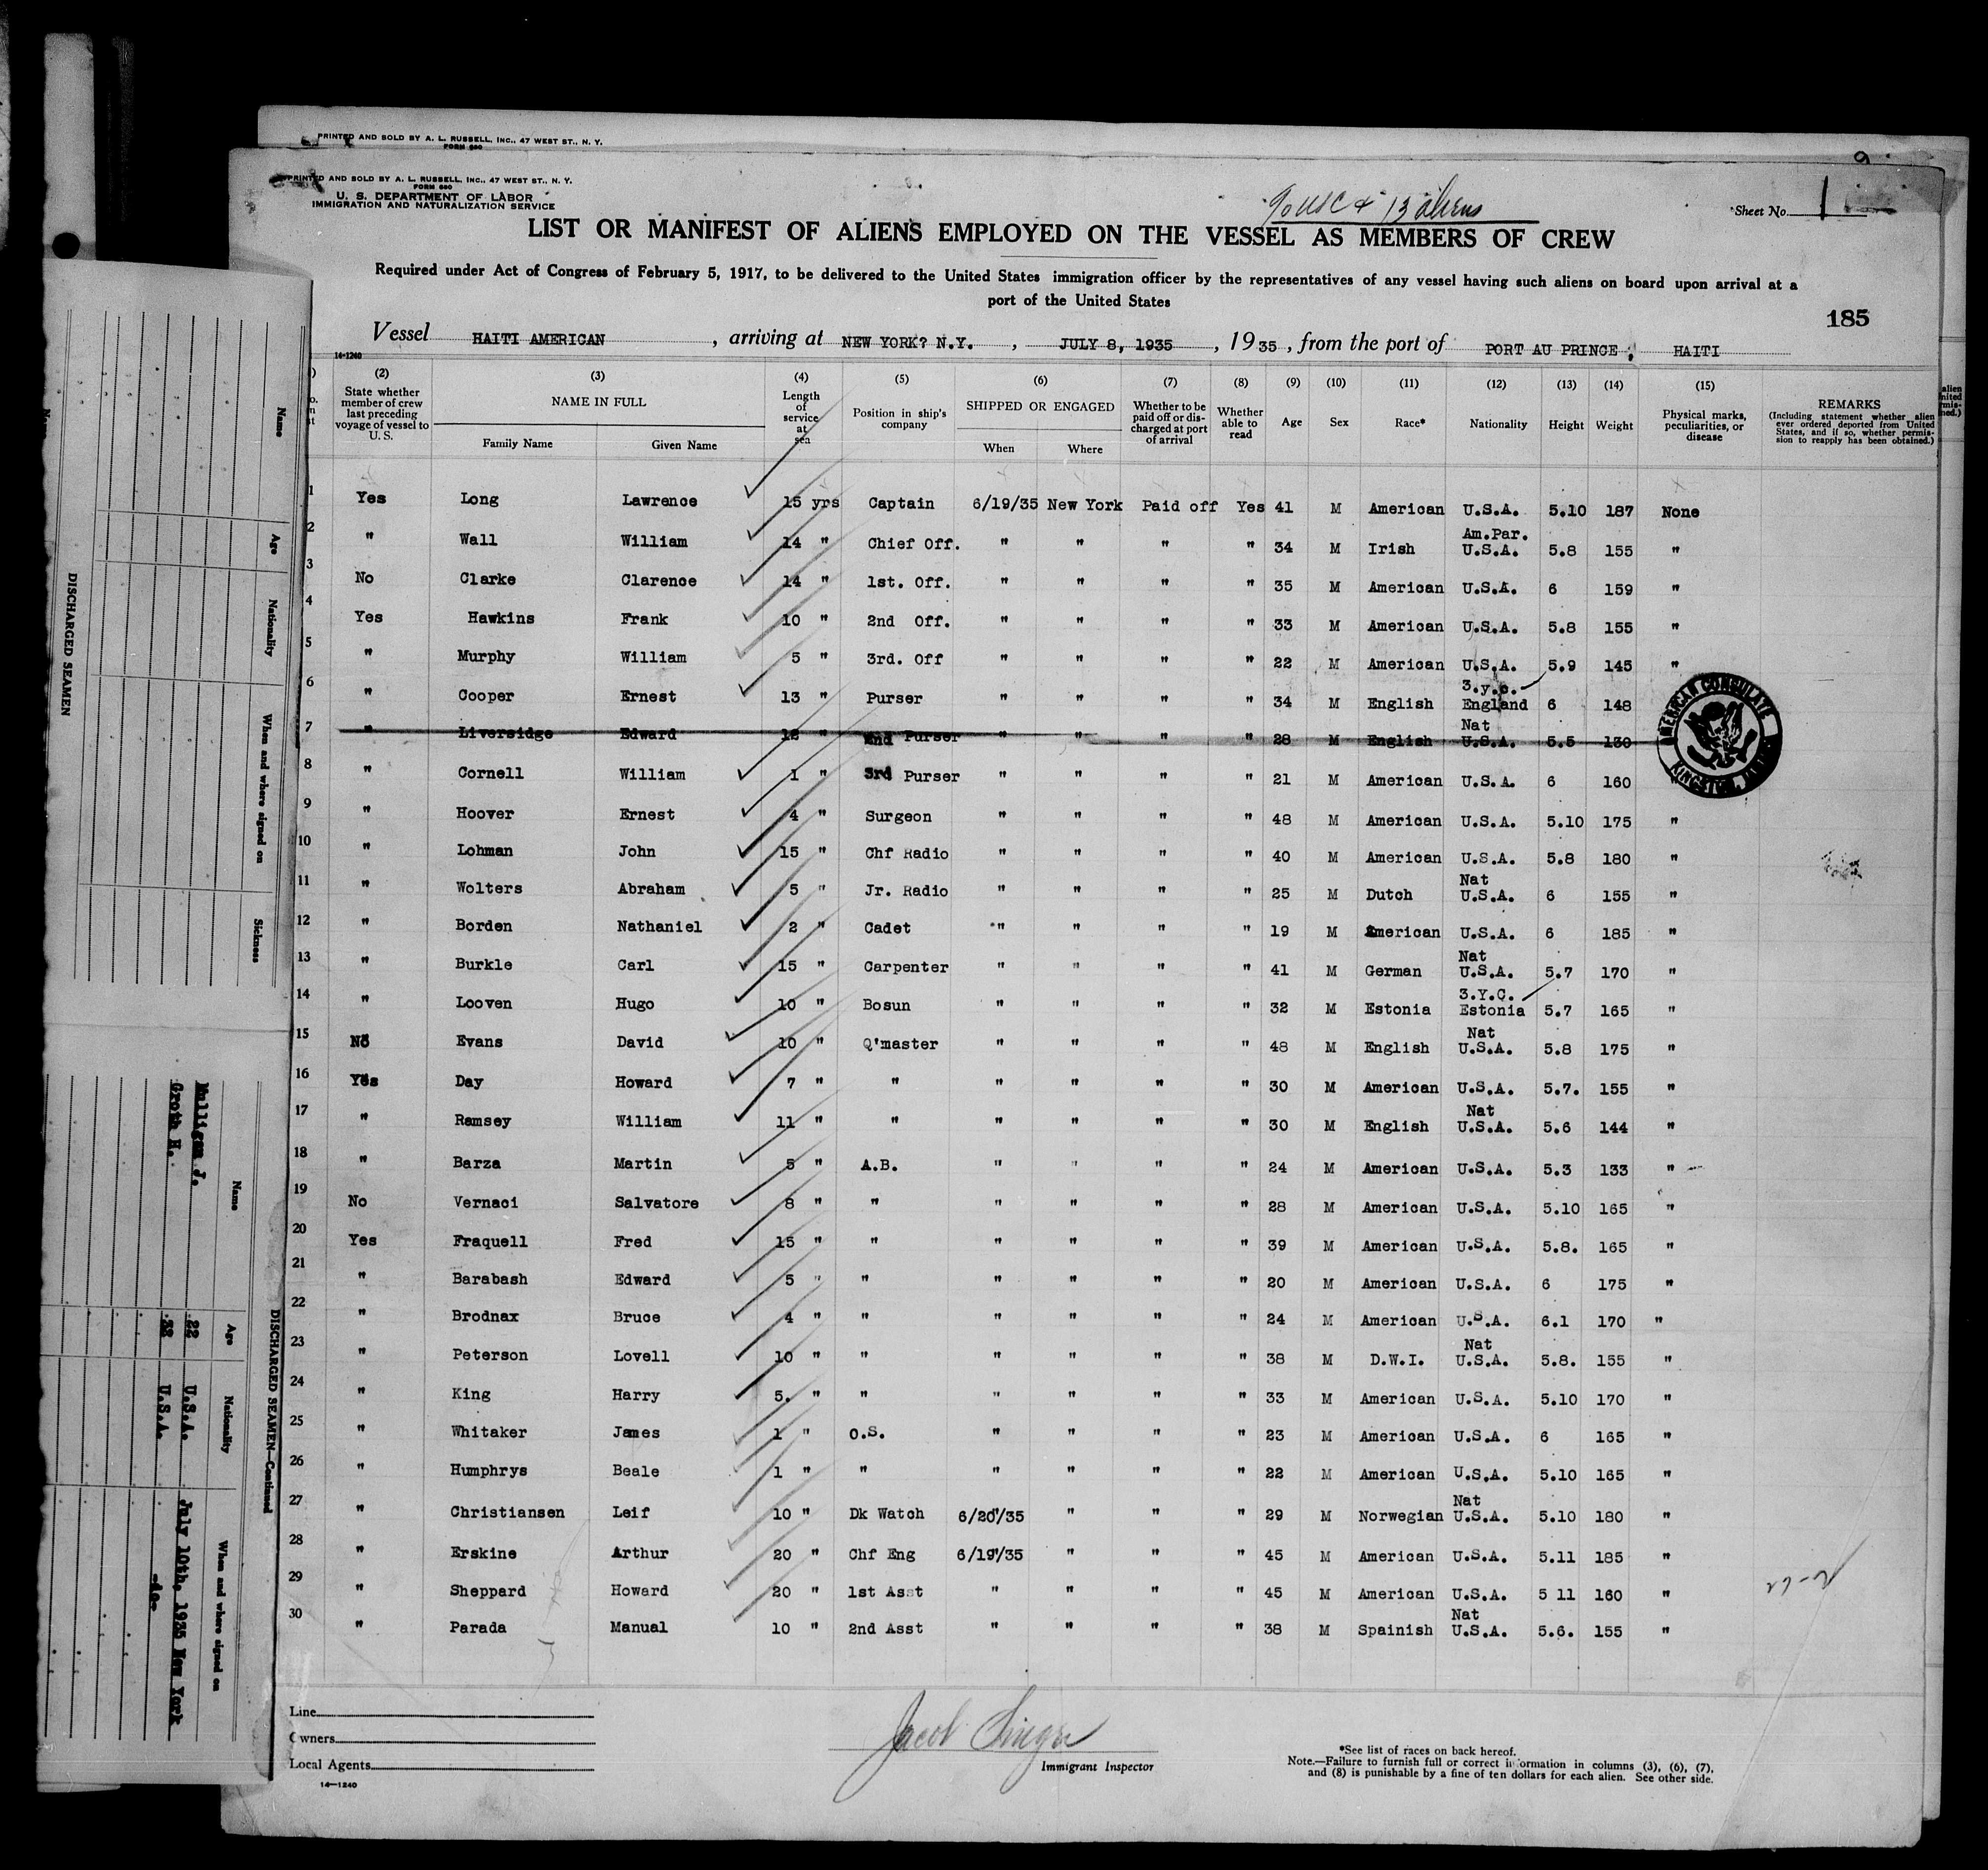 PRINTED AND SOLD BY A. L. RUSSELL, INC., 47 WEST ST., N. Y.
FORM 680
PRINTED AND SOLD BY A. L. RUSSELL, INC., 47 WEST ST., N. Y.
FORM 680
U. S. DEPARTMENT OF LABOR
IMMIGRATION AND NATURALIZATION SERVICE
90 USC & 13 aliens
Sheet No. 1
LIST OR MANIFEST OF ALIENS EMPLOYED ON THE VESSEL AS MEMBERS OF CREW
Required under Act of Congress of February 5, 1917, to be delivered to the United States immigration officer by the representatives of any vessel having such aliens on board upon arrival at a
port of the United States
185
Vessel HAITI AMERICAN, arriving at NEW YORK? N.Y., JULY 8, 1935, 1935, from the port of PORT AU PRINCE, HAITI
14-1240
(2) State whether member of crew last preceding voyage of vessel to U. S.
(3) NAME IN FULL Family Name Given Name
(4) Length of service at sea
(5) Position in ship's company
(6) SHIPPED OR ENGAGED When Where
(7) Whether to be paid off or discharged at port of arrival
(8) Whether able to read
(9) Age
(10) Sex
(11) Race*
(12) Nationality
(13) Height
(14) Weight
(15) Physical marks, peculiarities, or disease
REMARKS (Including statement whether alien ever ordered deported from United States, and if so, whether permission to reapply has been obtained.)
1 Yes Long Lawrence 15 yrs Captain 6/19/35 New York Paid off Yes 41 M American U.S.A. 5.10 187 None
2 " Wall William 14 " Chief Off. " " " " 34 M Irish Am.Par. U.S.A. 5.8 155 "
3 No Clarke Clarence 14 " 1st. Off. " " " " 35 M American U.S.A. 6 159 "
4 Yes Hawkins Frank 10 " 2nd Off. " " " " 33 M American U.S.A. 5.8 155 "
5 " Murphy William 5 " 3rd. Off " " " " 22 M American U.S.A. 5.9 145 "
6 " Cooper Ernest 13 " Purser " " " " 34 M English 3.y.c. England 6 148
7 " Liversidge Edward 12 " 2nd Purser " " " " 28 M English Nat U.S.A. 5.5 130
8 " Cornell William 1 " 3rd Purser " " " " 21 M American U.S.A. 6 160
AMERICAN CONSULATE
KINGSTON,
9 " Hoover Ernest 4 " Surgeon " " " " 48 M American U.S.A. 5.10 175 "
10 " Lohman John 15 " Chf Radio " " " " 40 M American U.S.A. 5.8 180 "
11 " Wolters Abraham 5 " Jr. Radio " " " " 25 M Dutch Nat U.S.A. 6 155 "
12 " Borden Nathaniel 2 " Cadet " " " " 19 M American U.S.A. 6 185 "
13 " Burkle Carl 15 " Carpenter " " " " 41 M German Nat U.S.A. 5.7 170 "
14 " Looven Hugo 10 " Bosun " " " " 32 M Estonia 3.Y.C. Estonia 5.7 165 "
15 No Evans David 10 " Q'master " " " " 48 M English Nat U.S.A. 5.8 175 "
16 Yes Day Howard 7 " " " " " " 30 M American U.S.A. 5.7. 155 "
17 " Ramsey William 11 " " " " " " 30 M English Nat U.S.A. 5.6 144 "
18 " Barza Martin 5 " A.B. " " " " 24 M American U.S.A. 5.3 133 "
19 No Vernaci Salvatore 8 " " " " " " 28 M American U.S.A. 5.10 165 "
20 Yes Fraquell Fred 15 " " " " " " 39 M American U.S.A. 5.8. 165 "
21 " Barabash Edward 5 " " " " " " 20 M American U.S.A. 6 175 "
22 " Brodnax Bruce 4 " " " " " " 24 M American U.S.A. 6.1 170 "
23 " Peterson Lovell 10 " " " " " " 38 M D.W.I. Nat U.S.A. 5.8. 155 "
24 " King Harry 5. " " " " " " 33 M American U.S.A. 5.10 170 "
25 " Whitaker James 1 " O.S. " " " " 23 M American U.S.A. 6 165 "
26 " Humphrys Beale 1 " " " " " " 22 M American U.S.A. 5.10 165 "
27 " Christiansen Leif 10 " Dk Watch 6/20/35 " " " 29 M Norwegian Nat U.S.A. 5.10 180 "
28 " Erskine Arthur 20 " Chf Eng 6/19/35 " " " 45 M American U.S.A. 5.11 185 "
29 " Sheppard Howard 20 " 1st Asst " " " " 45 M American U.S.A. 5 11 160 "
30 " Parada Manual 10 " 2nd Asst " " " " 38 M Spainish Nat U.S.A. 5.6. 155 "
Line
Owners
Local Agents
14-1240
Jacob
Immigrant Inspector
*See list of races on back hereof.
Note.—Failure to furnish full or correct information in columns (3), (6), (7),
and (8) is punishable by a fine of ten dollars for each alien. See other side.
DISCHARGED SEAMEN
Name Age Nationality When and where signed on Sickness
DISCHARGED SEAMEN—Continued
Name Age Nationality When and where signed on
Mulligan J. 22 U.S.A. July 10th, 1935 New York
Groth H. 32 U.S.A. -do-